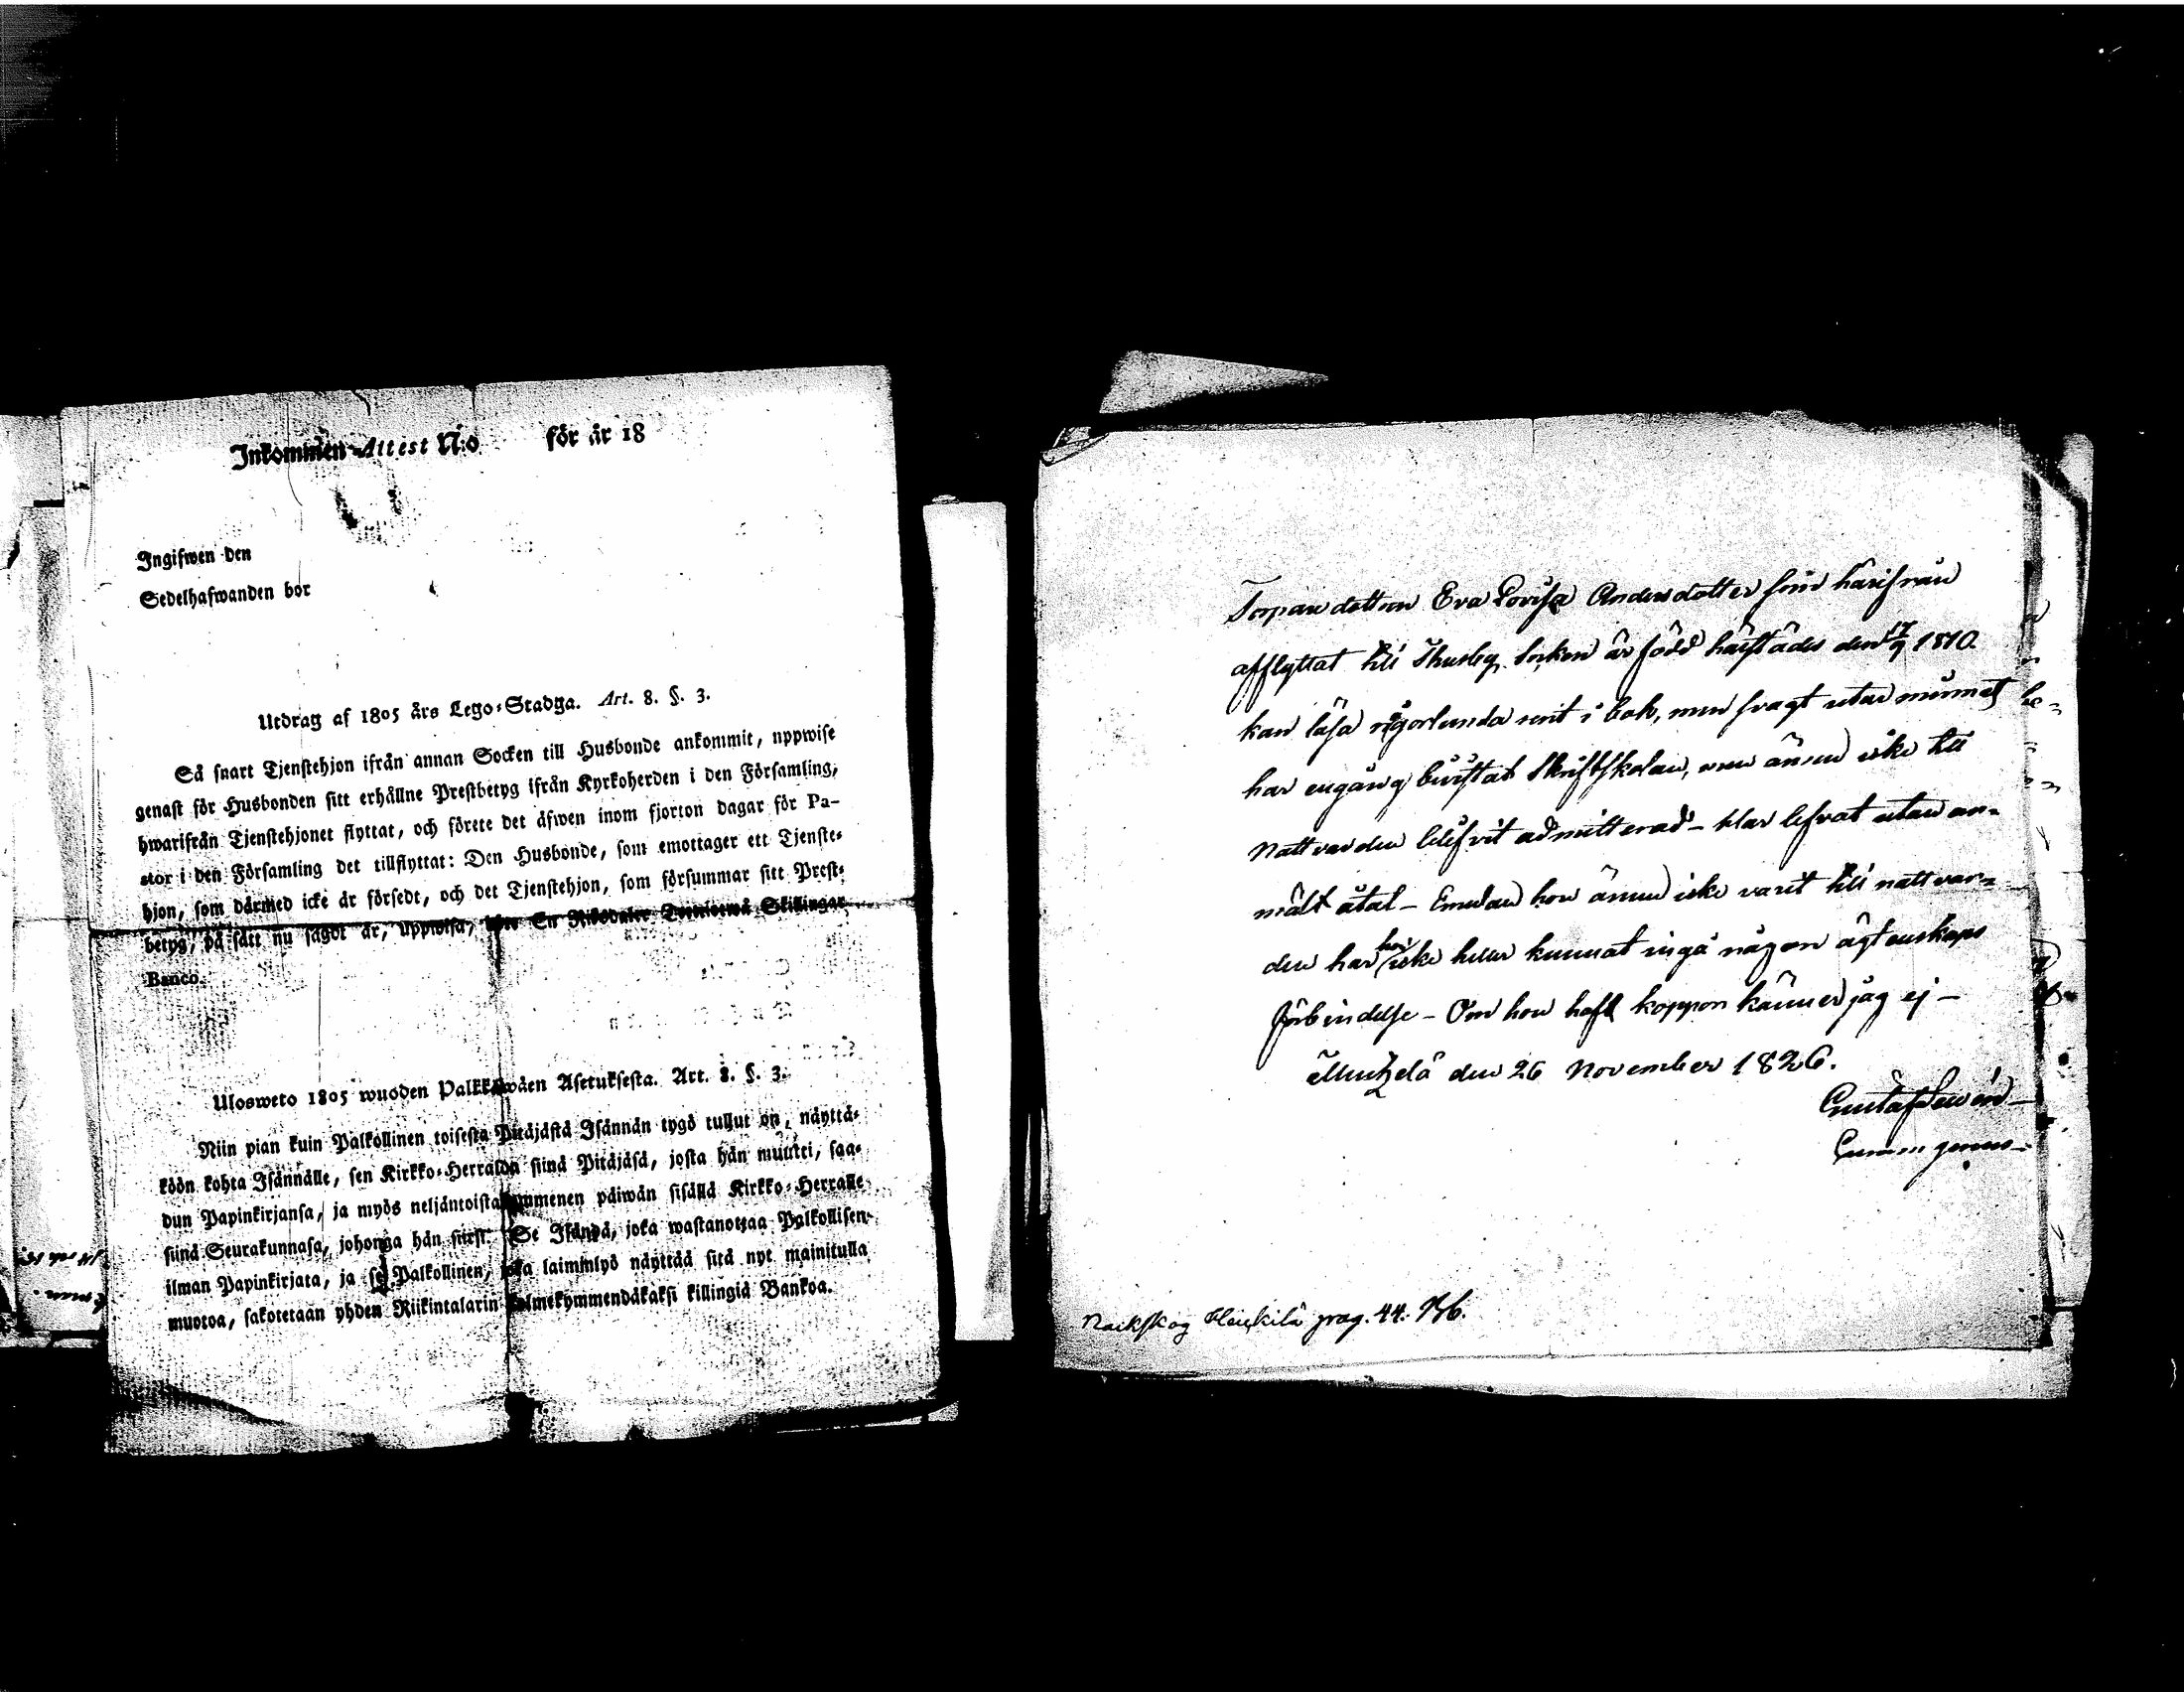 Inkommen Attest N:o för år 18
Ingifwen den
Sedelhafwanden bor
Utdrag af 1805 års Lego-Stadga. Art. 8. §. 3.
Så snart Tjenstehjon ifrån annan Socken till Husbonde ankommit, uppwise
genast för Husbonden sitt erhållne Prestbetyg ifrån Kyrkoherden i den Församling,
hwarifrån Tjenstehjonet flyttat, och förete det äfwen inom fjorton dagar för Pa-
stor i den Församling det tillflyttat: Den Husbonde, som emottager ett Tjenste-
hjon, som därmed icke är försedt, och det Tjenstehjon, som försummar sitt Prest-
betyg, på sätt nu sagdt är, uppwisa, böte En Riksdaler Trettiotwå Skillingar
Banco.
Ulosweto 1805 wuoden Palkkawäen Asetuksesta. Art. 8. §. 3.
Niin pian kuin Palkollinen toisesta Pitäjästä Isännän tygö tullut on, näyttä-
köön kohta Isännälle, sen Kirkko-Herralda siinä Pitäjäsä, josta hän muutti, saa-
dun Papinkirjansa, ja myös neljäntoistakymmenen päiwän sisällä Kirkko-Herralle
siinä Seurakunnasa, johonga hän siirst. Se Isändä, joka wastanottaa Palkollisen
ilman Papinkirjata, ja se Palkollinen, joka laiminlyö näyttää sitä nyt mainitulla
muotoa, sakotetaan yhden Riikintalarin kolmekymmendäkaksi killingiä Bankoa.
Torpare dottren Eva Lovisa Andersdotter som härifrån
afflyttat till Thusby Socken är född härstädes den 17/9 1810
kan läsa någorlunda rent i bok, men svagt utur minnet
har engång bevistat Skriftskolan, men ännu icke till
Nattvarden blifvit admitterad - Har lefvat utan an-
mält åtal - Emedan hon ännu icke varit till nattvar-
den har hon icke heller kunnat ingå någon ägtenskaps
förbindelse - Om hon haft koppor känner jag ej -
den 26 November 1826.
Gustaf
Nackskog Heikkilä pag. 44.